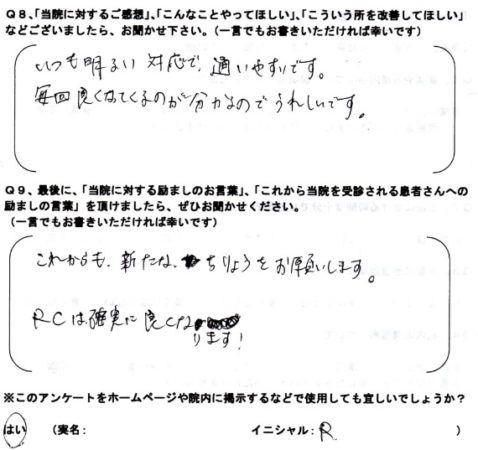 Q8、「当院に対するご感想」、「こんなことやってほしい」、「こういう所を改善してほしい」
などございましたら、お聞かせ下さい。(一言でもお書きいただければ幸いです)
いつも明るい対応で、通いやすいです。
毎回良くなってくるのが分かるのでうれしいです。
Q9、最後に、「当院に対する励ましのお言葉」、「これから当院を受診される患者さんへの
励ましの言葉」を頂けましたら、ぜひお聞かせください。
(一言でもお書きいただければ幸いです)
これからも、新たな、ちりょうをお願いします。
RCは確実に良くな
ります!
※このアンケートをホームページや院内に掲示するなどで使用しても宜しいでしょうか?
はい (実名: イニシャル:R )